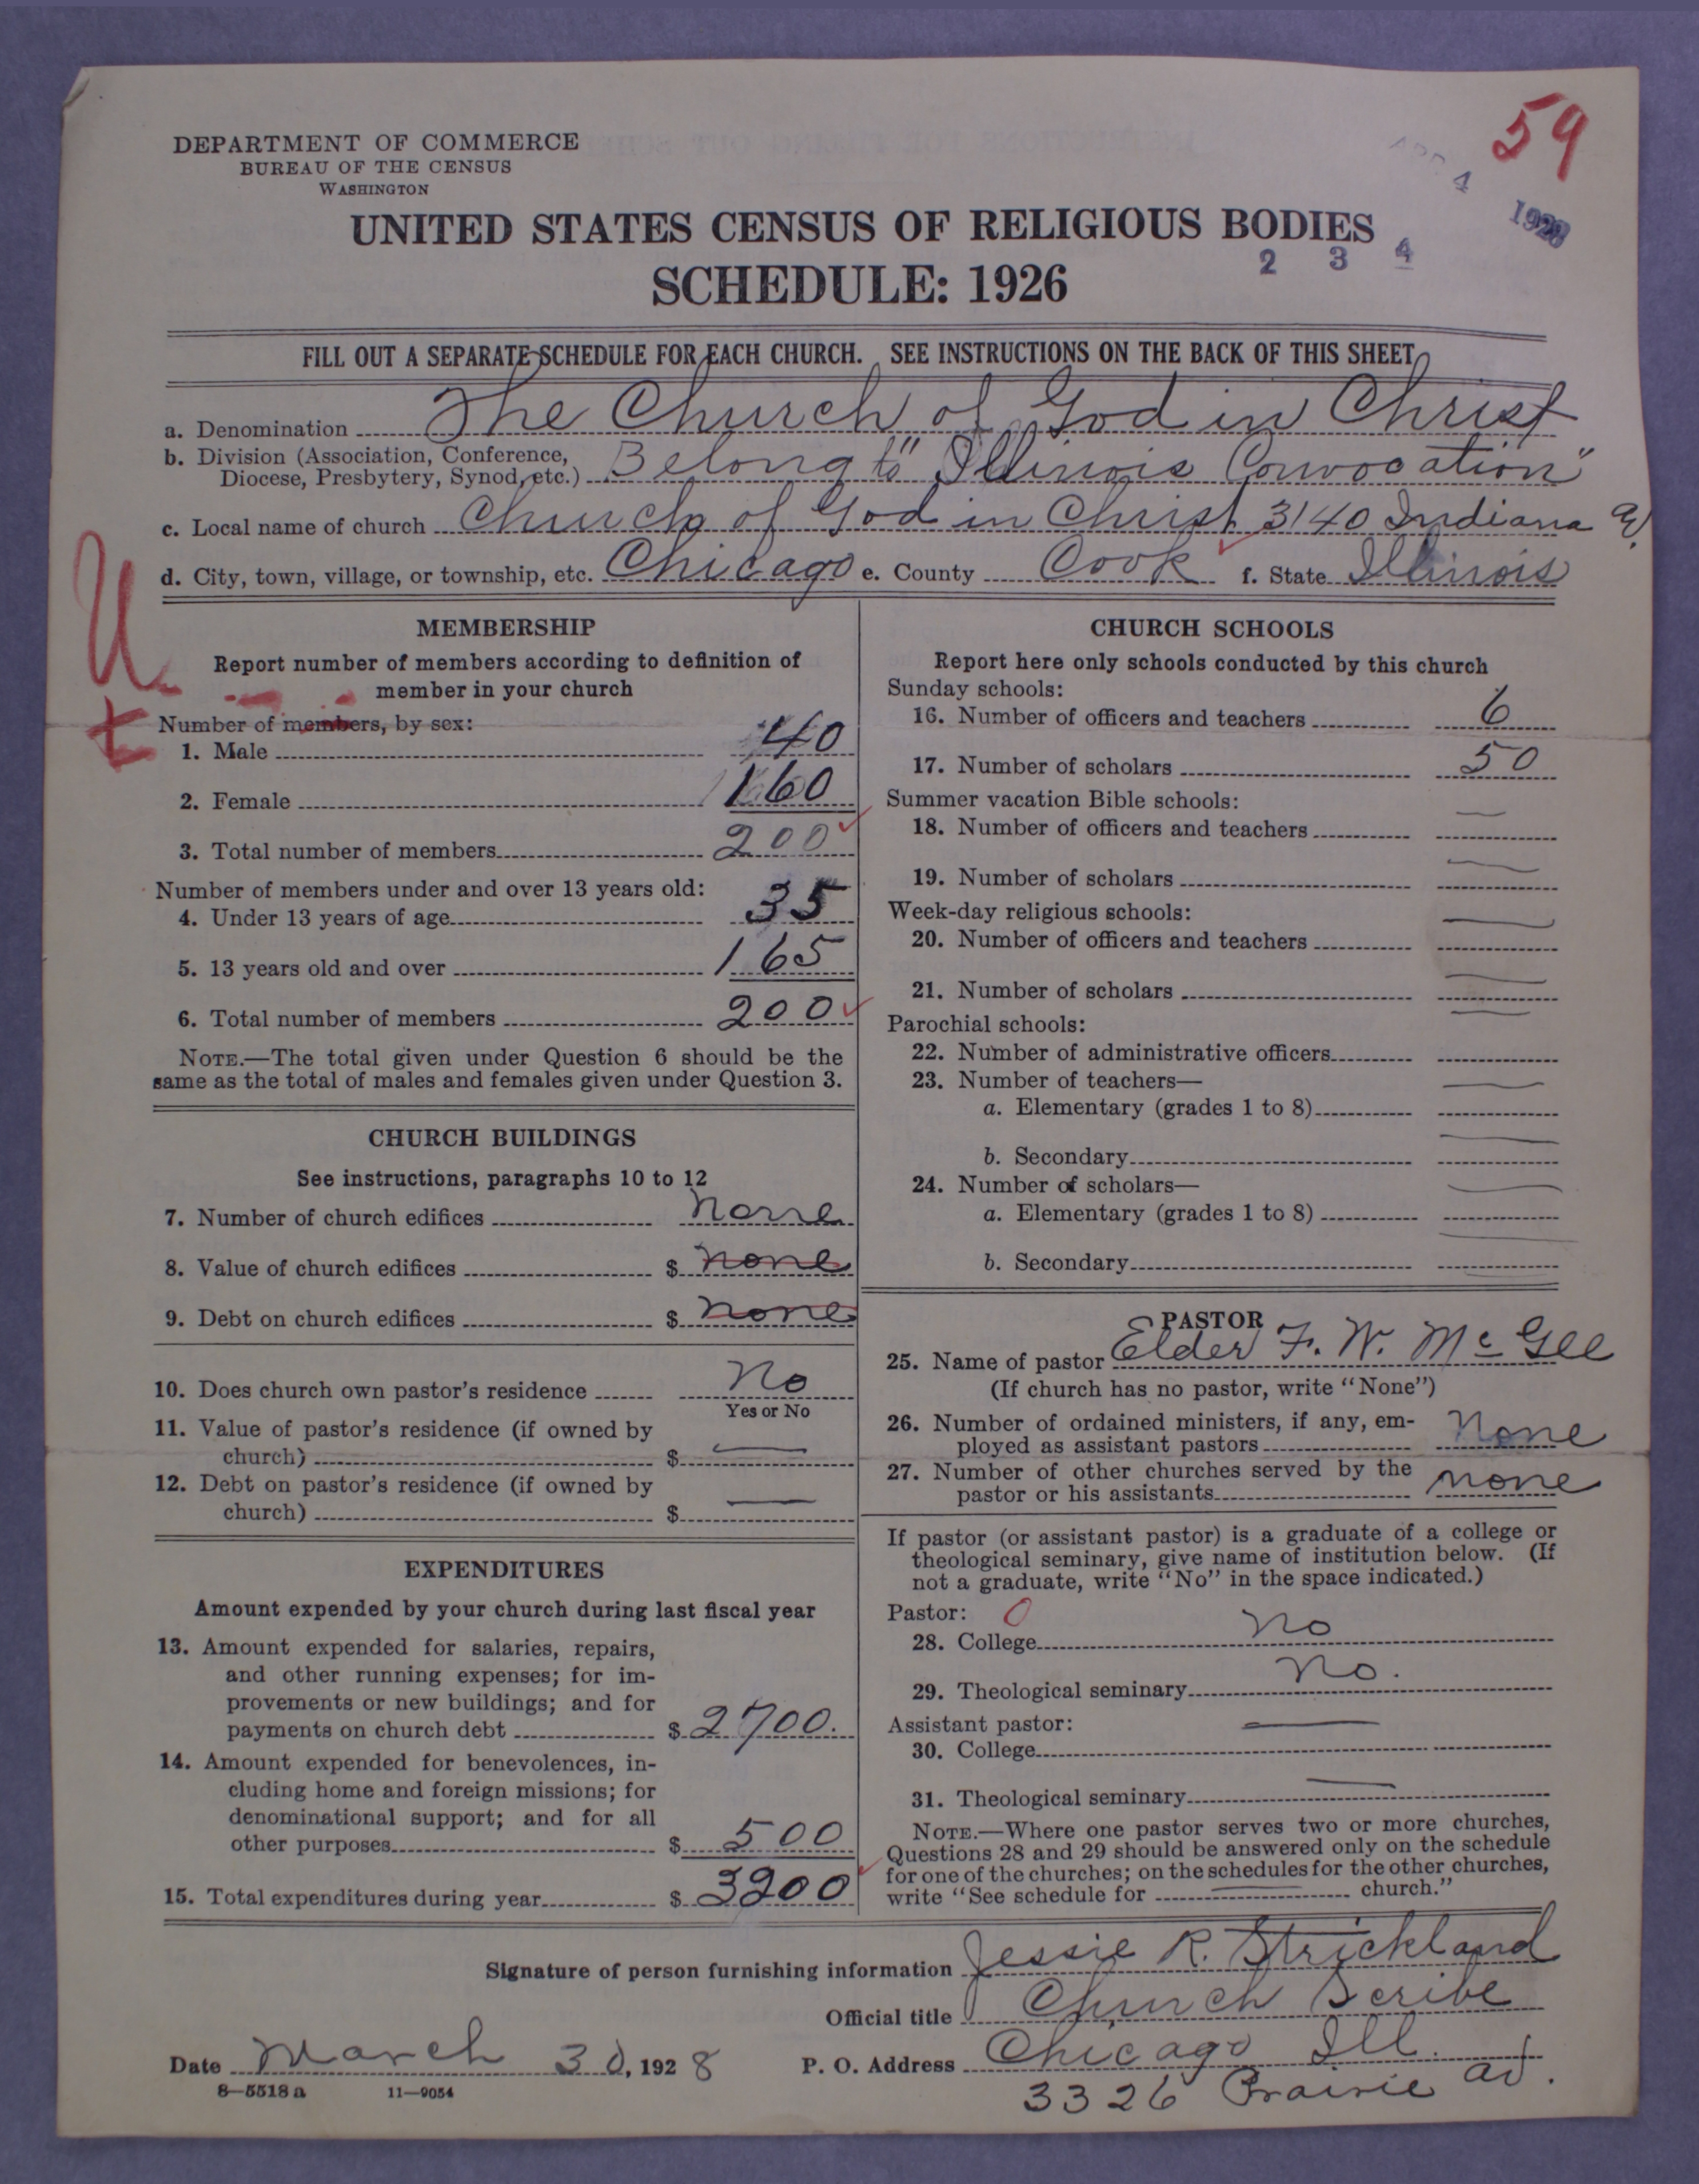 59
APR 4 1928
DEPARTMENT OF COMMERCE
BUREAU OF THE CENSUS
WASHINGTON
UNITED STATES CENSUS OF RELIGIOUS BODIES
2 3 4
SCHEDULE: 1926
FILL OUT A SEPARATE SCHEDULE FOR EACH CHURCH. SEE INSTRUCTIONS ON THE BACK OF THIS SHEET
a. Denomination The Church of God in Christ
b. Division (Association, Conference,
Diocese, Presbytery, Synod, etc.) Belong to "Illinois Convocation"
c. Local name of church Church of God in Christ 3140 Indiana av.
d. City, town, village, or township, etc. Chicago e. County Cook f. State Illinois
U
t
MEMBERSHIP
Report number of members according to definition of
member in your church
Number of members, by sex:
1. Male 40
2. Female 160
3. Total number of members 200
Number of members under and over 13 years old:
4. Under 13 years of age 35
5. 13 years old and over 165
6. Total number of members 200
NOTE.—The total given under Question 6 should be the
same as the total of males and females given under Question 3.
CHURCH BUILDINGS
See instructions, paragraphs 10 to 12
7. Number of church edifices None
8. Value of church edifices $ none
9. Debt on church edifices $ none
10. Does church own pastor's residence No
Yes or No
11. Value of pastor's residence (if owned by
church) $ —
12. Debt on pastor's residence (if owned by
church) $ —
EXPENDITURES
Amount expended by your church during last fiscal year
13. Amount expended for salaries, repairs,
and other running expenses; for im-
provements or new buildings; and for
payments on church debt $ 2700.
14. Amount expended for benevolences, in-
cluding home and foreign missions; for
denominational support; and for all
other purposes $ 500
15. Total expenditures during year $ 3200
CHURCH SCHOOLS
Report here only schools conducted by this church
Sunday schools:
16. Number of officers and teachers 6
17. Number of scholars 50
Summer vacation Bible schools:
18. Number of officers and teachers —
19. Number of scholars —
Week-day religious schools:
20. Number of officers and teachers —
21. Number of scholars —
Parochial schools:
22. Number of administrative officers —
23. Number of teachers—
a. Elementary (grades 1 to 8) —
b. Secondary —
24. Number of scholars—
a. Elementary (grades 1 to 8) —
b. Secondary —
PASTOR
25. Name of pastor Elder F. W. McGee
(If church has no pastor, write "None")
26. Number of ordained ministers, if any, em-
ployed as assistant pastors None
27. Number of other churches served by the
pastor or his assistants none
If pastor (or assistant pastor) is a graduate of a college or
theological seminary, give name of institution below. (If
not a graduate, write "No" in the space indicated.)
Pastor: 0
28. College No
29. Theological seminary No.
Assistant pastor:
30. College —
31. Theological seminary —
NOTE.—Where one pastor serves two or more churches,
Questions 28 and 29 should be answered only on the schedule
for one of the churches; on the schedules for the other churches,
write "See schedule for — church."
Signature of person furnishing information Jessie R. Strickland
Official title Church Scribe
Date March 30, 1928 P. O. Address Chicago Ill.
8—5518 a 11—9054
3326 Prairie av.